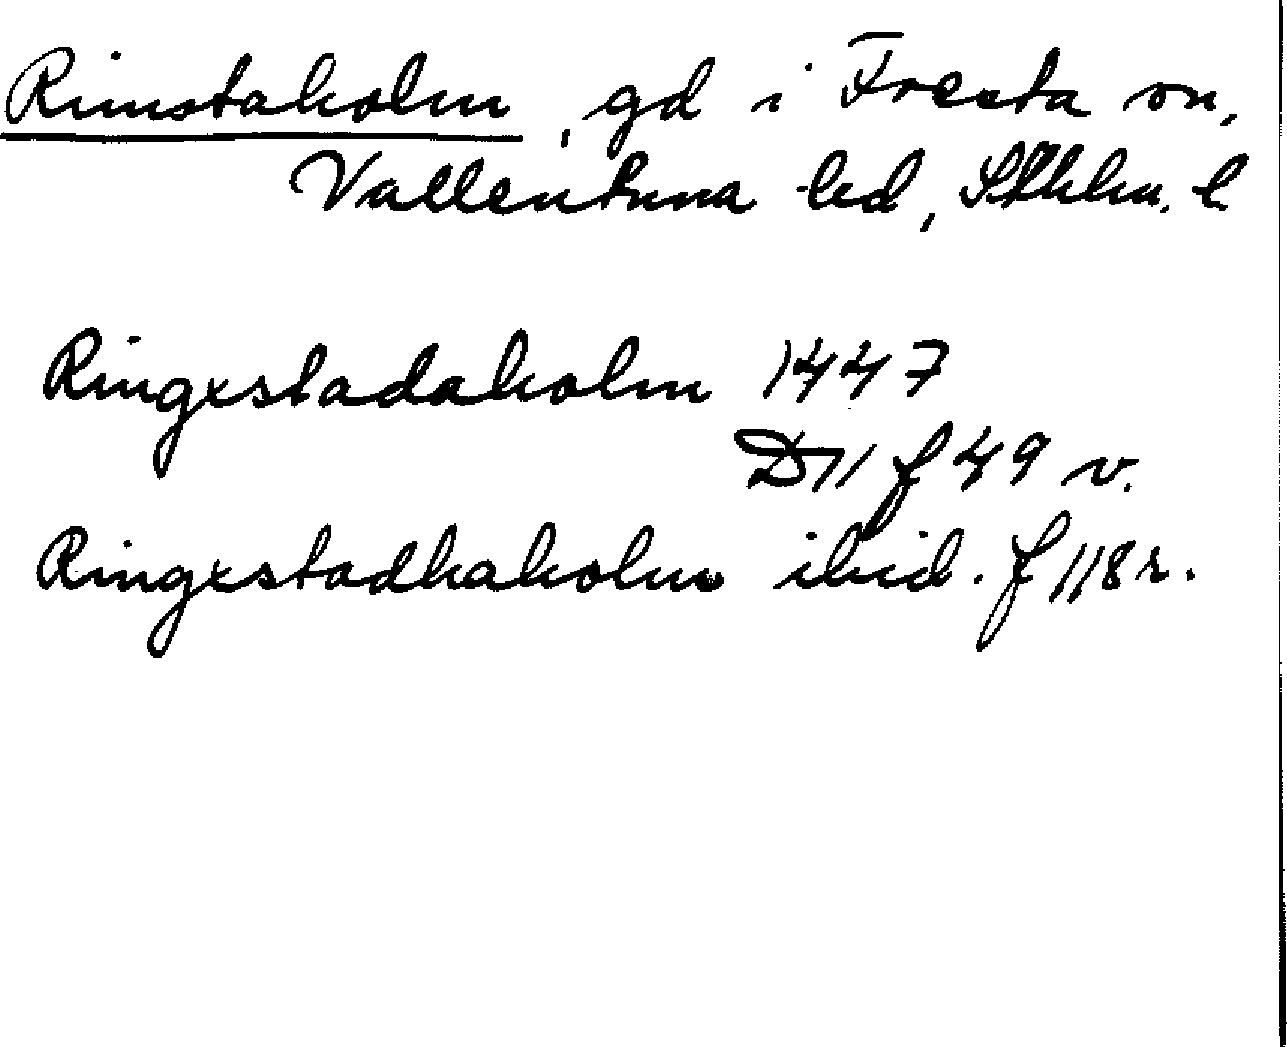 Rimstaholm, gd i Fresta sn,
Vallentuna hd, Sthlm. l
Ringxstadaholm 1447
D11 f 49 v.
Ringxstadhaholm ibid. f 118 r.